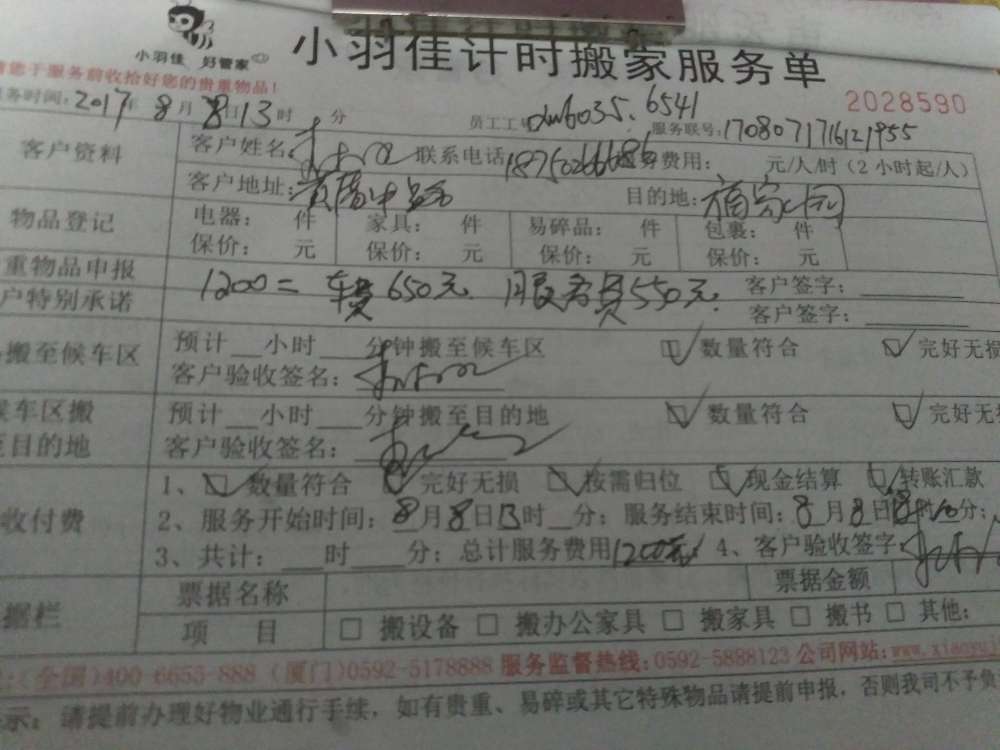 小羽佳 好管家
小羽佳计时搬家服务单
请您于服务前收拾好您的贵重物品!
2028590
务时间:2017年8月8日13时 分
员工工号 6035.6541
服务联号:1708071716121955
客户资料
客户姓名: 联系电话 费用: 元/人/时(2小时起/人)
客户地址: 目的地:
物品登记
电器: 件 家具: 件 易碎品: 件 包裹: 件
保价: 元 保价: 元 保价: 元 保价: 元
重物品申报
1200= 车费650元 服务费550元 客户签字:
户特别承诺 客户签字:
搬至候车区 预计 小时 分钟搬至候车区 数量符合 完好无损
客户验收签名:
候车区搬 预计 小时 分钟搬至目的地 数量符合 完好无损
至目的地 客户验收签名:
收付费
1、 数量符合 完好无损 按需归位 现金结算 转账汇款
2、服务开始时间:8月8日13时 分; 服务结束时间:8月8日18时 分;
3、共计: 时 分; 总计服务费用1200元 4、客户验收签字
据栏 票据名称 票据金额
项 目 □ 搬设备 □ 搬办公家具 □ 搬家具 □ 搬书 □ 其他:
:(全国)400-6655-888 (厦门)0592-5178888 服务监督热线:0592-5888123 公司网站:www.xiaoyuj
示: 请提前办理好物业通行手续, 如有贵重、易碎或其它特殊物品请提前申报, 否则我司不予负